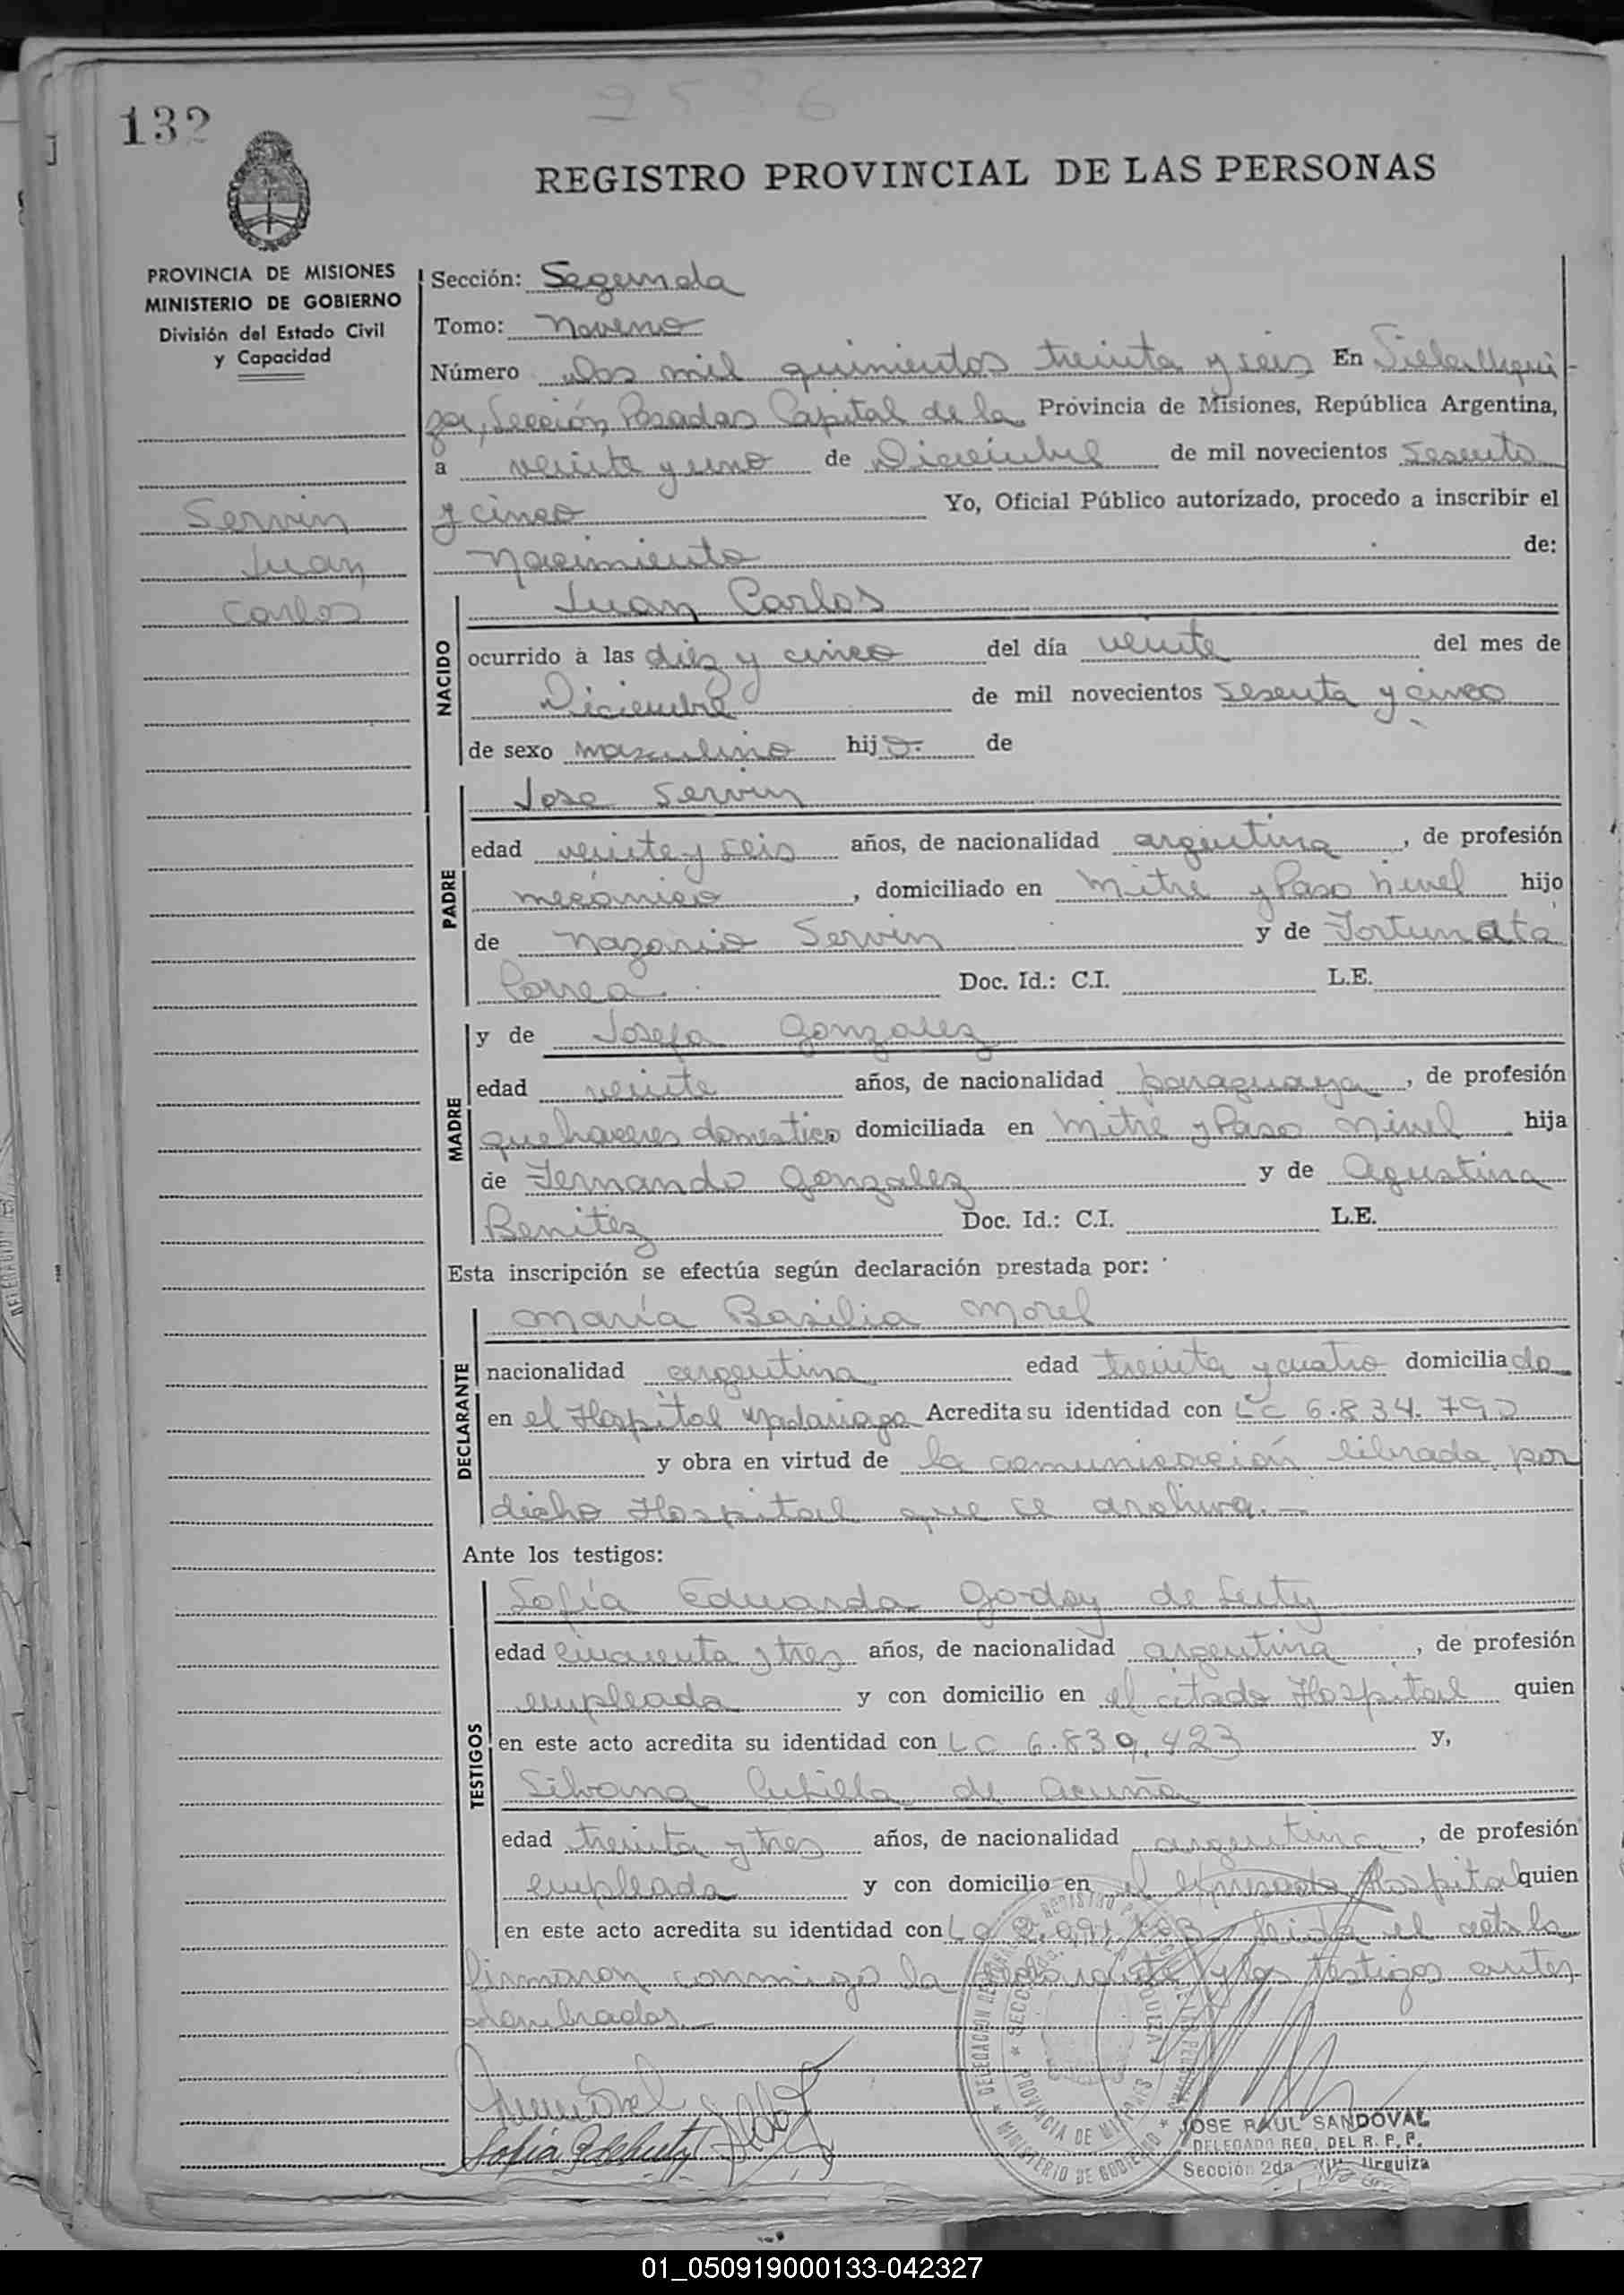 2536
132
REGISTRO PROVINCIAL DE LAS PERSONAS
PROVINCIA DE MISIONES
MINISTERIO DE GOBIERNO
División del Estado Civil
y Capacidad
Servin
Juan
Carlos
Sección: Segunda
Tomo: Noveno
Número Dos mil quinientos treinta y seis En Villa Urqui
za, Sección Posadas Capital de la Provincia de Misiones, República Argentina,
a veinte y uno de Diciembre de mil novecientos sesenta
y cinco Yo, Oficial Público autorizado, procedo a inscribir el
Nacimiento de:
NACIDO
Juan Carlos
ocurrido a las diez y cinco del día veinte del mes de
Diciembre de mil novecientos sesenta y cinco
de sexo masculino hijo de
PADRE
Jose Servin
edad veinte y seis años, de nacionalidad argentina, de profesión
mecánico, domiciliado en Mitre y Paso Nivel hijo
de Nazario Servin y de Fortunata
Correa Doc. Id.: C.I. L.E.
MADRE
y de Josefa Gonzalez
edad veinte años, de nacionalidad paraguaya, de profesión
quehaceres domestico domiciliada en Mitre y Paso Nivel hija
de Fernando Gonzalez y de Agustina
Benitez Doc. Id.: C.I. L.E.
Esta inscripción se efectúa según declaración prestada por:
DECLARANTE
María Basilia Morel
nacionalidad argentina edad treinta y cuatro domiciliado
en el Hospital Madariaga Acredita su identidad con LC 6.834.792
y obra en virtud de la comunicación librada por
dicho Hospital que se archiva.
Ante los testigos:
TESTIGOS
Sofía Eduarda Godoy de
edad cincuenta y tres años, de nacionalidad argentina, de profesión
empleada y con domicilio en el citado Hospital quien
en este acto acredita su identidad con LC 6.839.423 y,
Silvana Cubilla de Acuña
edad treinta y tres años, de nacionalidad argentina, de profesión
empleada y con domicilio en el expresado Hospital quien
en este acto acredita su identidad con LC Leida el acta la
firmaron conmigo la declarante y los testigos antes
nombrados.
JOSE RAUL SANDOVAL
DELEGADO REG. DEL R. P. P.
Sección 2da Villa Urquiza
01_050919000133-042327